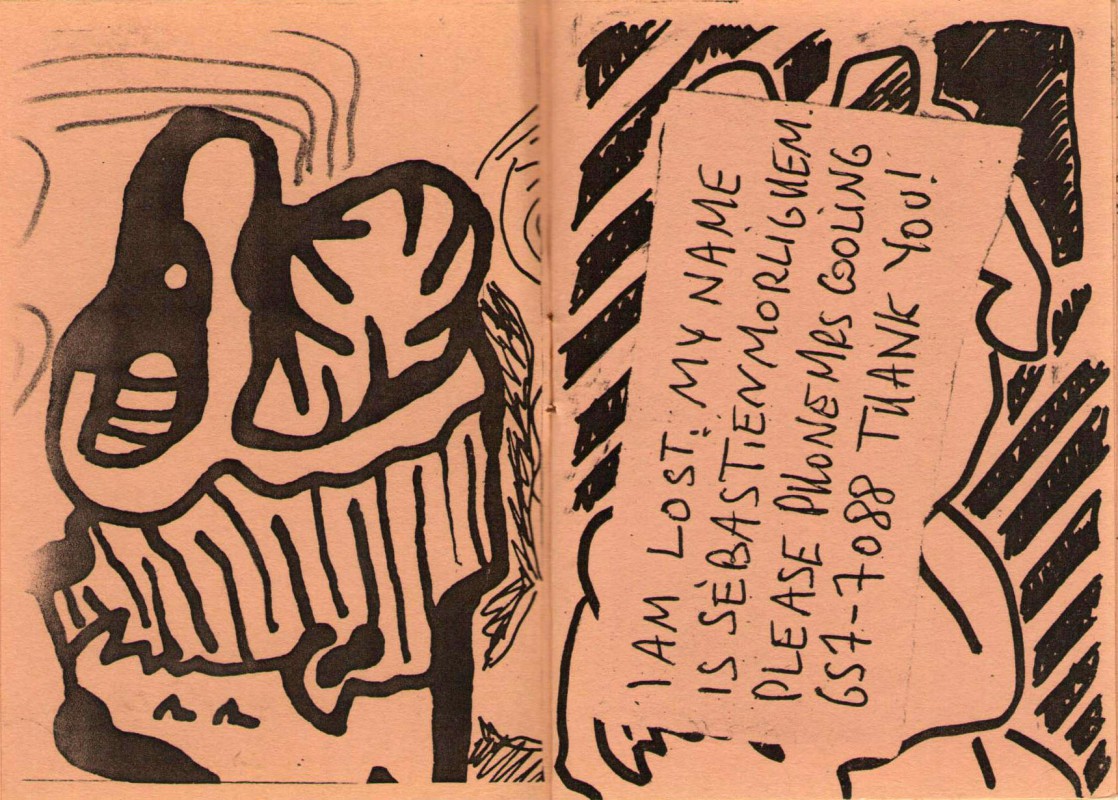 I AM LOST: MY NAME
IS SÈBASTIEN MORLIGHEM.
PLEASE PHONE MRS GOOLING
657-7088 THANK YOU!